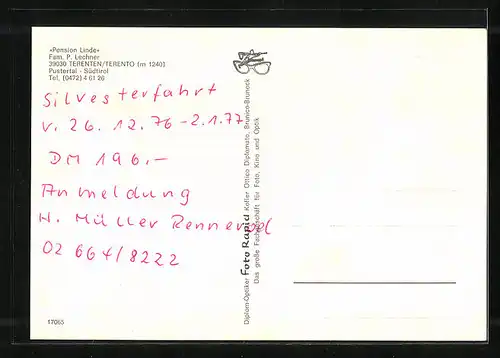 «Pension Linde»
Fam. P. Lechner
39030 TERENTEN/TERENTO (m 1240)
Pustertal - Südtirol
Tel. (0472) 4 61 26
Silvesterfahrt
v. 26. 12. 76 - 2.1.77
DM 196,-
Anmeldung
H. Müller Rennerod
02 664/8222
17065
Diplom-Optiker Foto Rapid Kofler Ottico Diplomato, Brunico-Bruneck
Das große Fachgeschäft für Foto, Kino und Optik